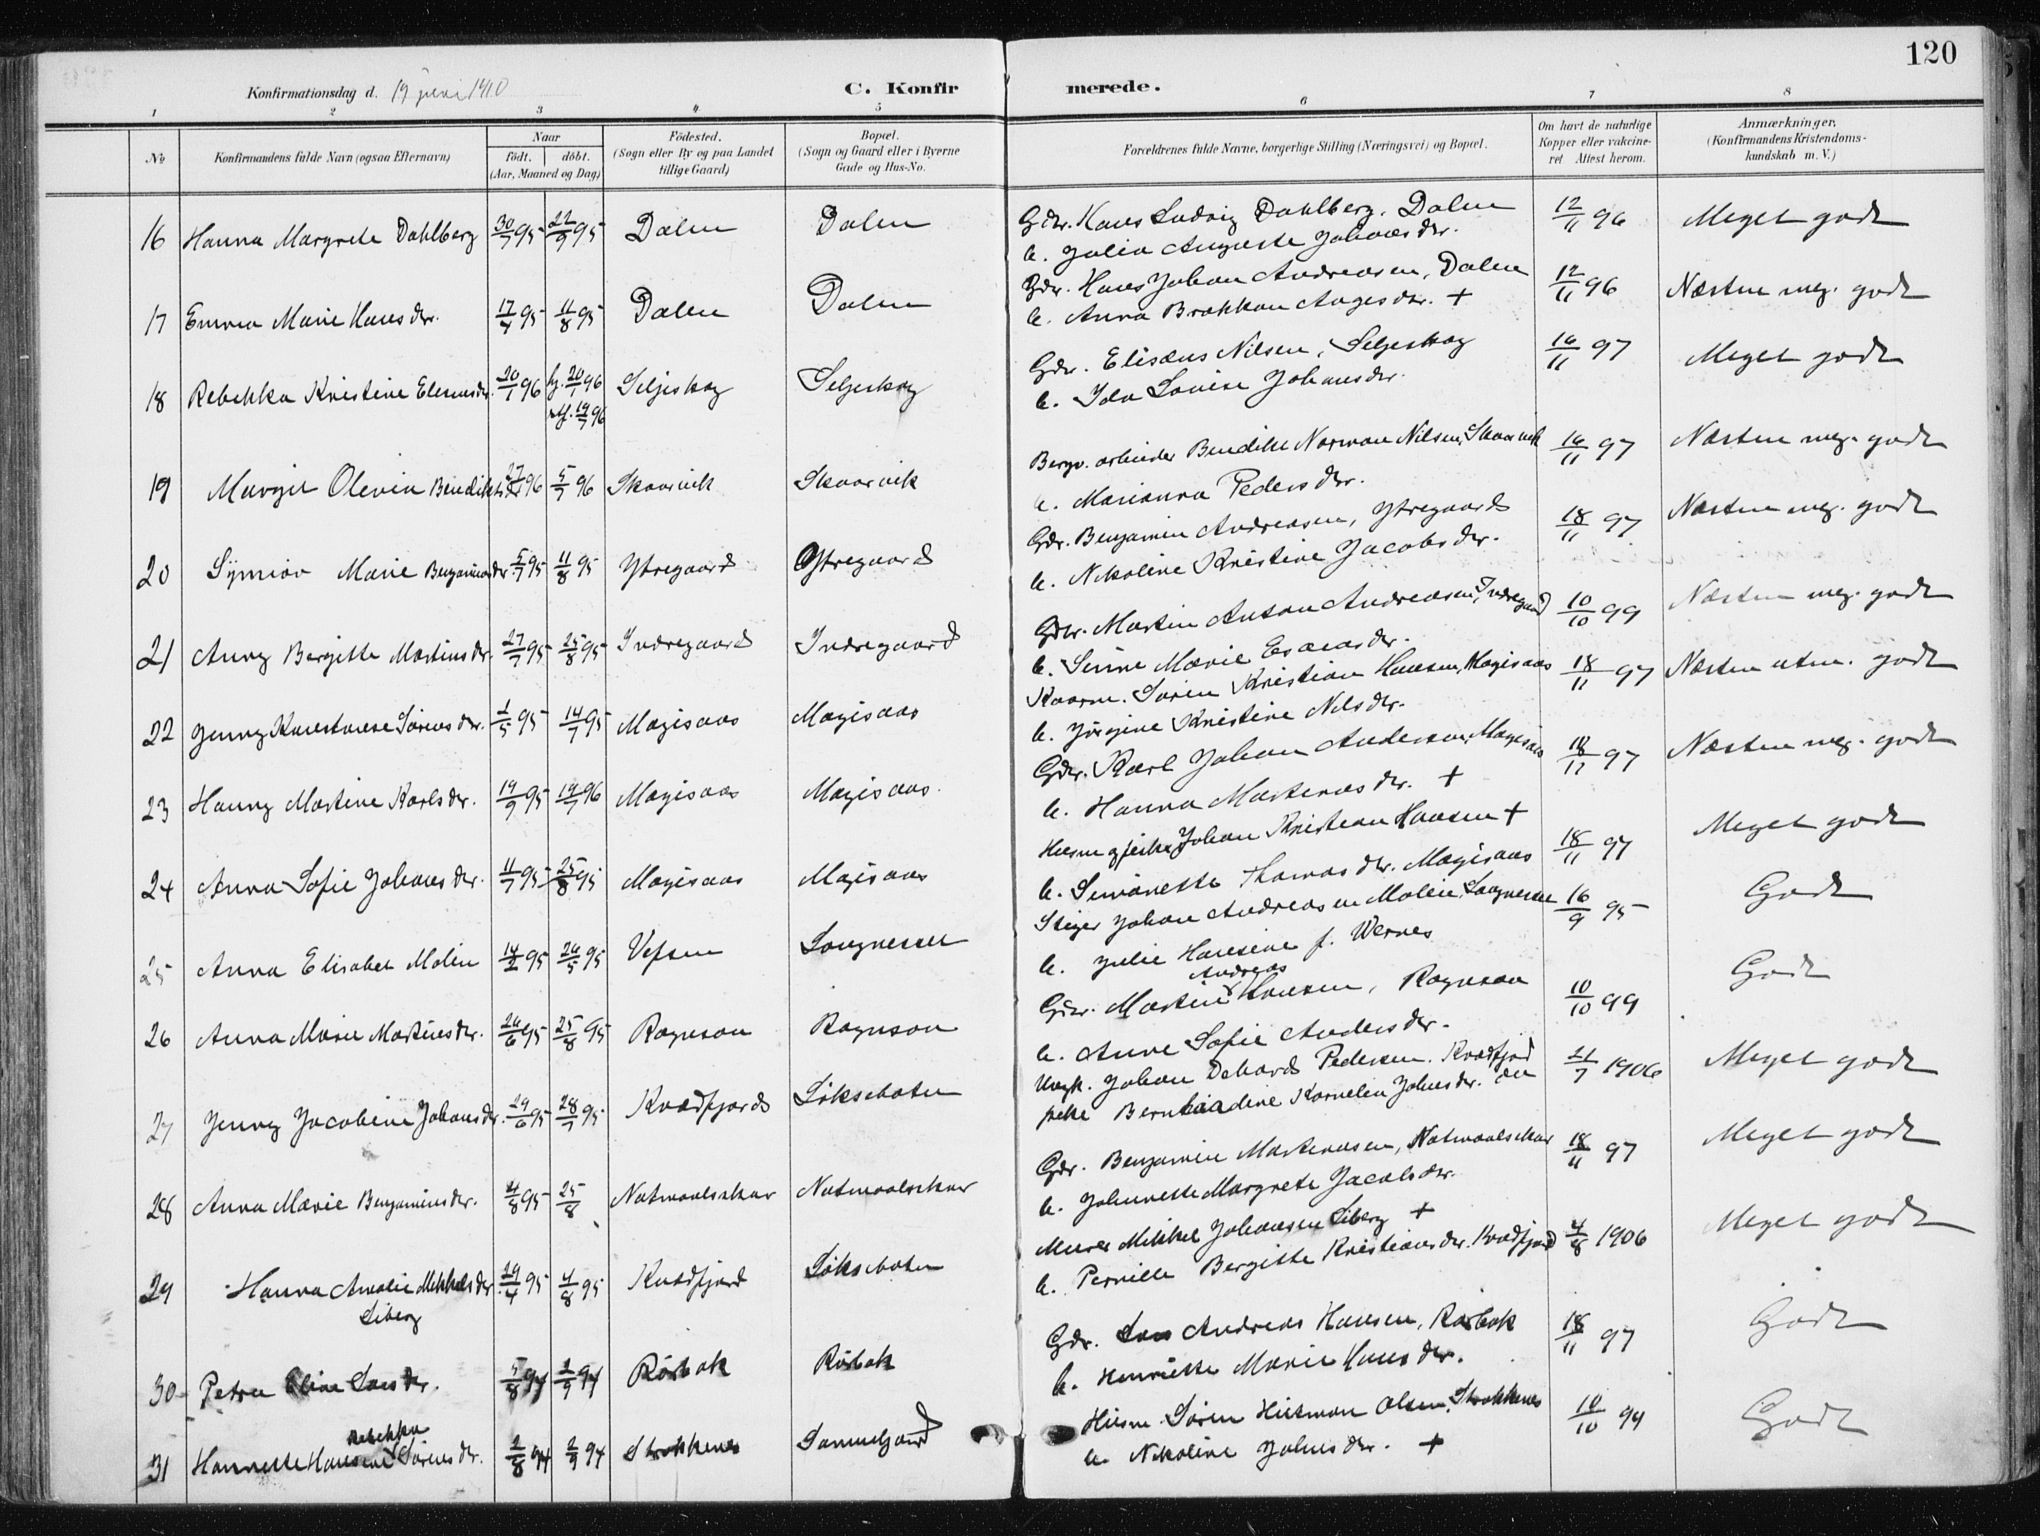 120
Konfirmationsdag d. 19 juni 1910
C. Konfirmerede.
1 2 3 4 5 6 7 8
No
Konfirmandens fulde Navn (ogsaa Efternavn)
Naar født. døbt. (Aar, Maaned og Dag)
Fødested. (Sogn eller By og paa Landet tillige Gaard)
Bopæl. (Sogn og Gaard eller i Byerne Gade og Hus-No.
Forældrenes fulde Navne, borgerlige Stilling (Næringsvei) og Bopæl.
Om havt de naturlige Kopper eller vakcineret Attest herom.
Anmærkninger. (Konfirmandens Kristendomskundskab m. V.)
16 Hanna Margrete Dahlberg 30/7 95 22/9 95 Dalen Dalen Gdr. Hans Ludvig Dahlberg. Dalen 12/11 96 Meget godt
h. Julia Auguste Johansdr.
17 Emma Marie Hansdr. 17/7 95 11/8 95 Dalen Dalen Gdr. Hans Johan Andreasen, Dalen 12/11 96 Næsten meg. godt
h. Anna Brakkan Angesdr. +
18 Rebekka Kristine Eleseusdr. 20/1 96 hj. 20/1 96 Seljeskog Seljeskog Gdr. Elisæus Nilsen, Seljeskog 16/11 97 Meget godt
stf. 19/7 96 h. Ida Lovise Johansdr.
19 Margit Olevia Benediktsdr 27/4 96 5/7 96 Skaarvik Skaarvik Bergv. arbeider Benedikt Norman Nilsen, Skaarvik 16/11 97 Næsten meg. godt
h. Marianna Pedersdr.
20 Synnøv Marie Benjaminsdr 5/7 95 11/8 95 Ytregaard Ytregaard Gdr. Benjamin Andreasen, Ytregaard 18/11 97 Næsten meg. godt
h. Nikoline Kristine Jacobsdr.
21 Anny Bergitte Martinsdr. 27/7 95 25/8 95 Indregaard Indregaard Gdr. Martin Anton Andreasen, Indregaard 10/10 99 Næsten meg. godt
h. Sinne Marie Esaiasdr.
22 Jenny Konstanse Sørensdr. 1/5 95 14/7 95 Magisaas Magisaas Kaarm. Søren Kristian Hansen, Magisaas 18/11 97 Næsten utm. godt
h. Jørgine Kristine Nilsdr.
23 Hanny Martine Karlsdr. 19/9 95 19/7 96 Magisaas Magisaas. Gdr. Karl Johan Andersen, Magisaas 18/11 97 Næsten meg. godt
h. Hanna Martinasdr. +
24 Anna Sofie Johansdr. 11/7 95 25/8 95 Magisaas Magisaas Johan Kristian Hansen + 18/11 97 Meget godt
h. Simonette Thomasdr. Magisaas
25 Anna Elisabet Molin 14/2 95 26/5 95 Vefsen Sangneset Stiger Johan Andreasen Molin, Sangneset 16/9 95 Godt
h. Julie Hansine f. Wernes
26 Anna Marie Martinsdr. 26/6 95 25/8 95 Rognsaa Rognsaa Gdr. Martin Andreas Hansen, Rognsaa 10/10 99 Godt
h. Anne Sofie Andersdr.
27 Jenny Jacobine Johansdr. 29/6 95 28/7 95 Kvædfjord Løksebotn Ungk. Johan Dehard Pedersen. Kvædfjord 21/7 1906 Meget godt
pike Bernhardine Kornelia Johnsdr.
28 Anna Marie Benjaminsdr. 4/8 95 25/8 Natmaalsskar Natmaalsskar Gdr. Benjamin Martinasen, Natmaalsskar 18/11 97 Meget godt
h. Johnette Margrete Jacobsdr.
29 Hanna Amalie Mikkelsdr 29/4 95 4/8 95 Kvædfjord Løksebotn Murer Mikkel Johansen Siberg + 4/8 1906 Meget godt
Siberg h. Pernille Bergitte Kristiansdr. Kvædfjord
30 Petra Eline Larsdr. 5/8 94 2/9 94 Rørbak Rørbak Gdr. Lars Andreas Hansen, Rørbak 18/11 97 Godt
h. Henriette Marie Hansdr.
31 Hannette Hansine Rebekka Sørensdr. 2/8 94 2/9 94 Strokkenes Samuelgaard Husm. Søren Hitsman Olsen, Strokkenes 10/10 99 Godt
h. Nikoline Johnsdr. +